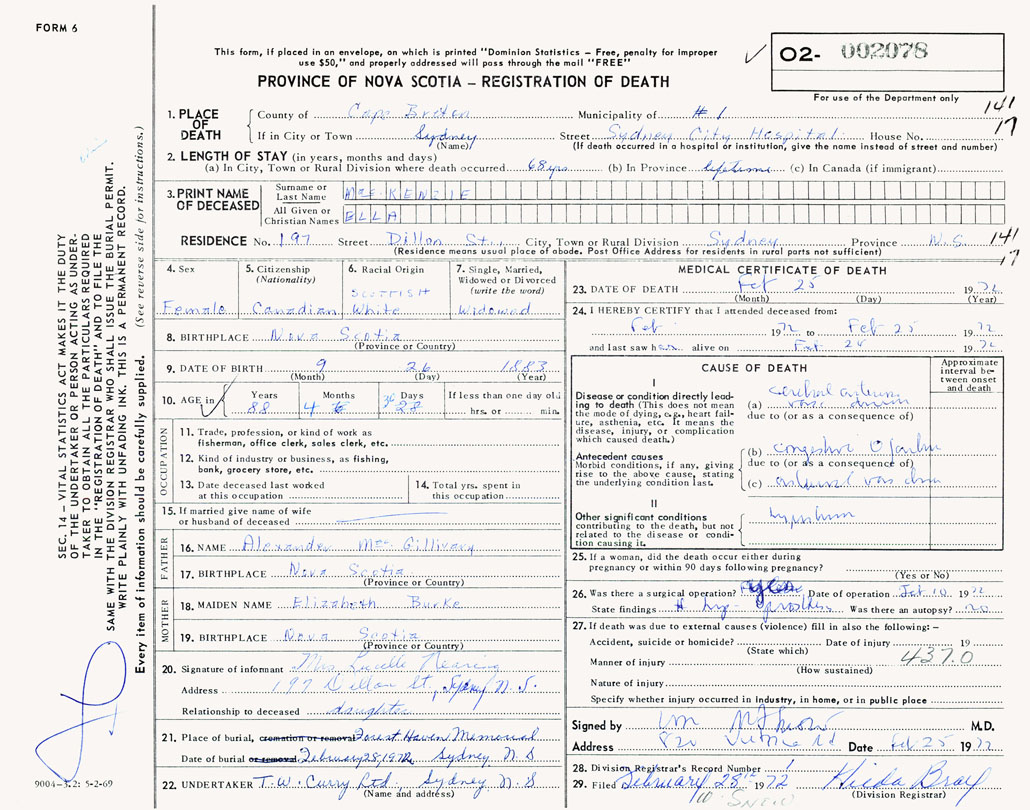 FORM 6
This form, if placed in an envelope, on which is printed "Dominion Statistics – Free, penalty for improper
use $50," and properly addressed will pass through the mail "FREE"
PROVINCE OF NOVA SCOTIA – REGISTRATION OF DEATH
✓ O2- 002078
For use of the Department only
141
17
1. PLACE OF DEATH
County of Cape Breton Municipality of #1
If in City or Town Sydney Street Sydney City Hospital House No.
(Name) (If death occurred in a hospital or institution, give the name instead of street and number)
2. LENGTH OF STAY (in years, months and days)
(a) In City, Town or Rural Division where death occurred 68 yrs (b) In Province lifetime (c) In Canada (if immigrant)
3. PRINT NAME OF DECEASED
Surname or Last Name MacKENZIE
All Given or Christian Names ELLA
RESIDENCE No. 197 Street Dillon St., City, Town or Rural Division Sydney Province N.S. 141
(Residence means usual place of abode. Post Office Address for residents in rural parts not sufficient) 17
4. Sex Female
5. Citizenship (Nationality) Canadian
6. Racial Origin SCOTTISH White
7. Single, Married, Widowed or Divorced (write the word) Widowed
8. BIRTHPLACE Nova Scotia
(Province or Country)
9. DATE OF BIRTH 9 26 1883
(Month) (Day) (Year)
10. AGE in Years Months Days If less than one day old
✓ 88 4 28 hrs. or min.
OCCUPATION
11. Trade, profession, or kind of work as
fisherman, office clerk, sales clerk, etc.
12. Kind of industry or business, as fishing,
bank, grocery store, etc.
13. Date deceased last worked
at this occupation
14. Total yrs. spent in
this occupation
15. If married give name of wife
or husband of deceased
FATHER
16. NAME Alexander Mac Gillivary
17. BIRTHPLACE Nova Scotia
(Province or Country)
MOTHER
18. MAIDEN NAME Elizabeth Burke
19. BIRTHPLACE Nova Scotia
(Province or Country)
20. Signature of informant Mrs. Lucille Nearing
Address 197 Dillon St, Sydney N.S.
Relationship to deceased daughter
21. Place of burial, cremation or removal Forest Haven Memorial
Date of burial or removal February 28, 1972 Sydney N S
22. UNDERTAKER T.W. Curry Ltd. Sydney N.S
(Name and address)
MEDICAL CERTIFICATE OF DEATH
23. DATE OF DEATH Feb 25 1972
(Month) (Day) (Year)
24. I HEREBY CERTIFY that I attended deceased from:
Feb 1972 to Feb 25 1972
and last saw her alive on Feb 1972
CAUSE OF DEATH
Approximate interval between onset and death
I
Disease or condition directly leading to death (This does not mean the mode of dying, e.g., heart failure, asthenia, etc. It means the disease, injury, or complication which caused death.)
(a) cerebral
due to (or as a consequence of)
Antecedent causes
Morbid conditions, if any, giving rise to the above cause, stating the underlying condition last.
(b) congestive
due to (or as a consequence of)
(c)
II
Other significant conditions contributing to the death, but not related to the disease or condition causing it.
25. If a woman, did the death occur either during
pregnancy or within 90 days following pregnancy?
(Yes or No)
26. Was there a surgical operation? yes Date of operation Feb 10 1972
State findings Was there an autopsy? no
27. If death was due to external causes (violence) fill in also the following: –
Accident, suicide or homicide? Date of injury 19
(State which)
437.0
Manner of injury
(How sustained)
Nature of injury
Specify whether injury occurred in industry, in home, or in public place
Signed by M.D.
Address Date Feb 25 1972
28. Division Registrar's Record Number
29. Filed February 28th 1972 Hilda Bray
(Division Registrar)
SEC. 14 – VITAL STATISTICS ACT MAKES IT THE DUTY
OF THE UNDERTAKER OR PERSON ACTING AS UNDER-
TAKER TO OBTAIN ALL THE PARTICULARS REQUIRED
IN THE "REGISTRATION OF DEATH" AND TO FILE THE
SAME WITH THE DIVISION REGISTRAR WHO SHALL ISSUE THE BURIAL PERMIT.
WRITE PLAINLY WITH UNFADING INK. THIS IS A PERMANENT RECORD.
Every item of information should be carefully supplied. (See reverse side for instructions.)
9004-3.2: 5-2-69